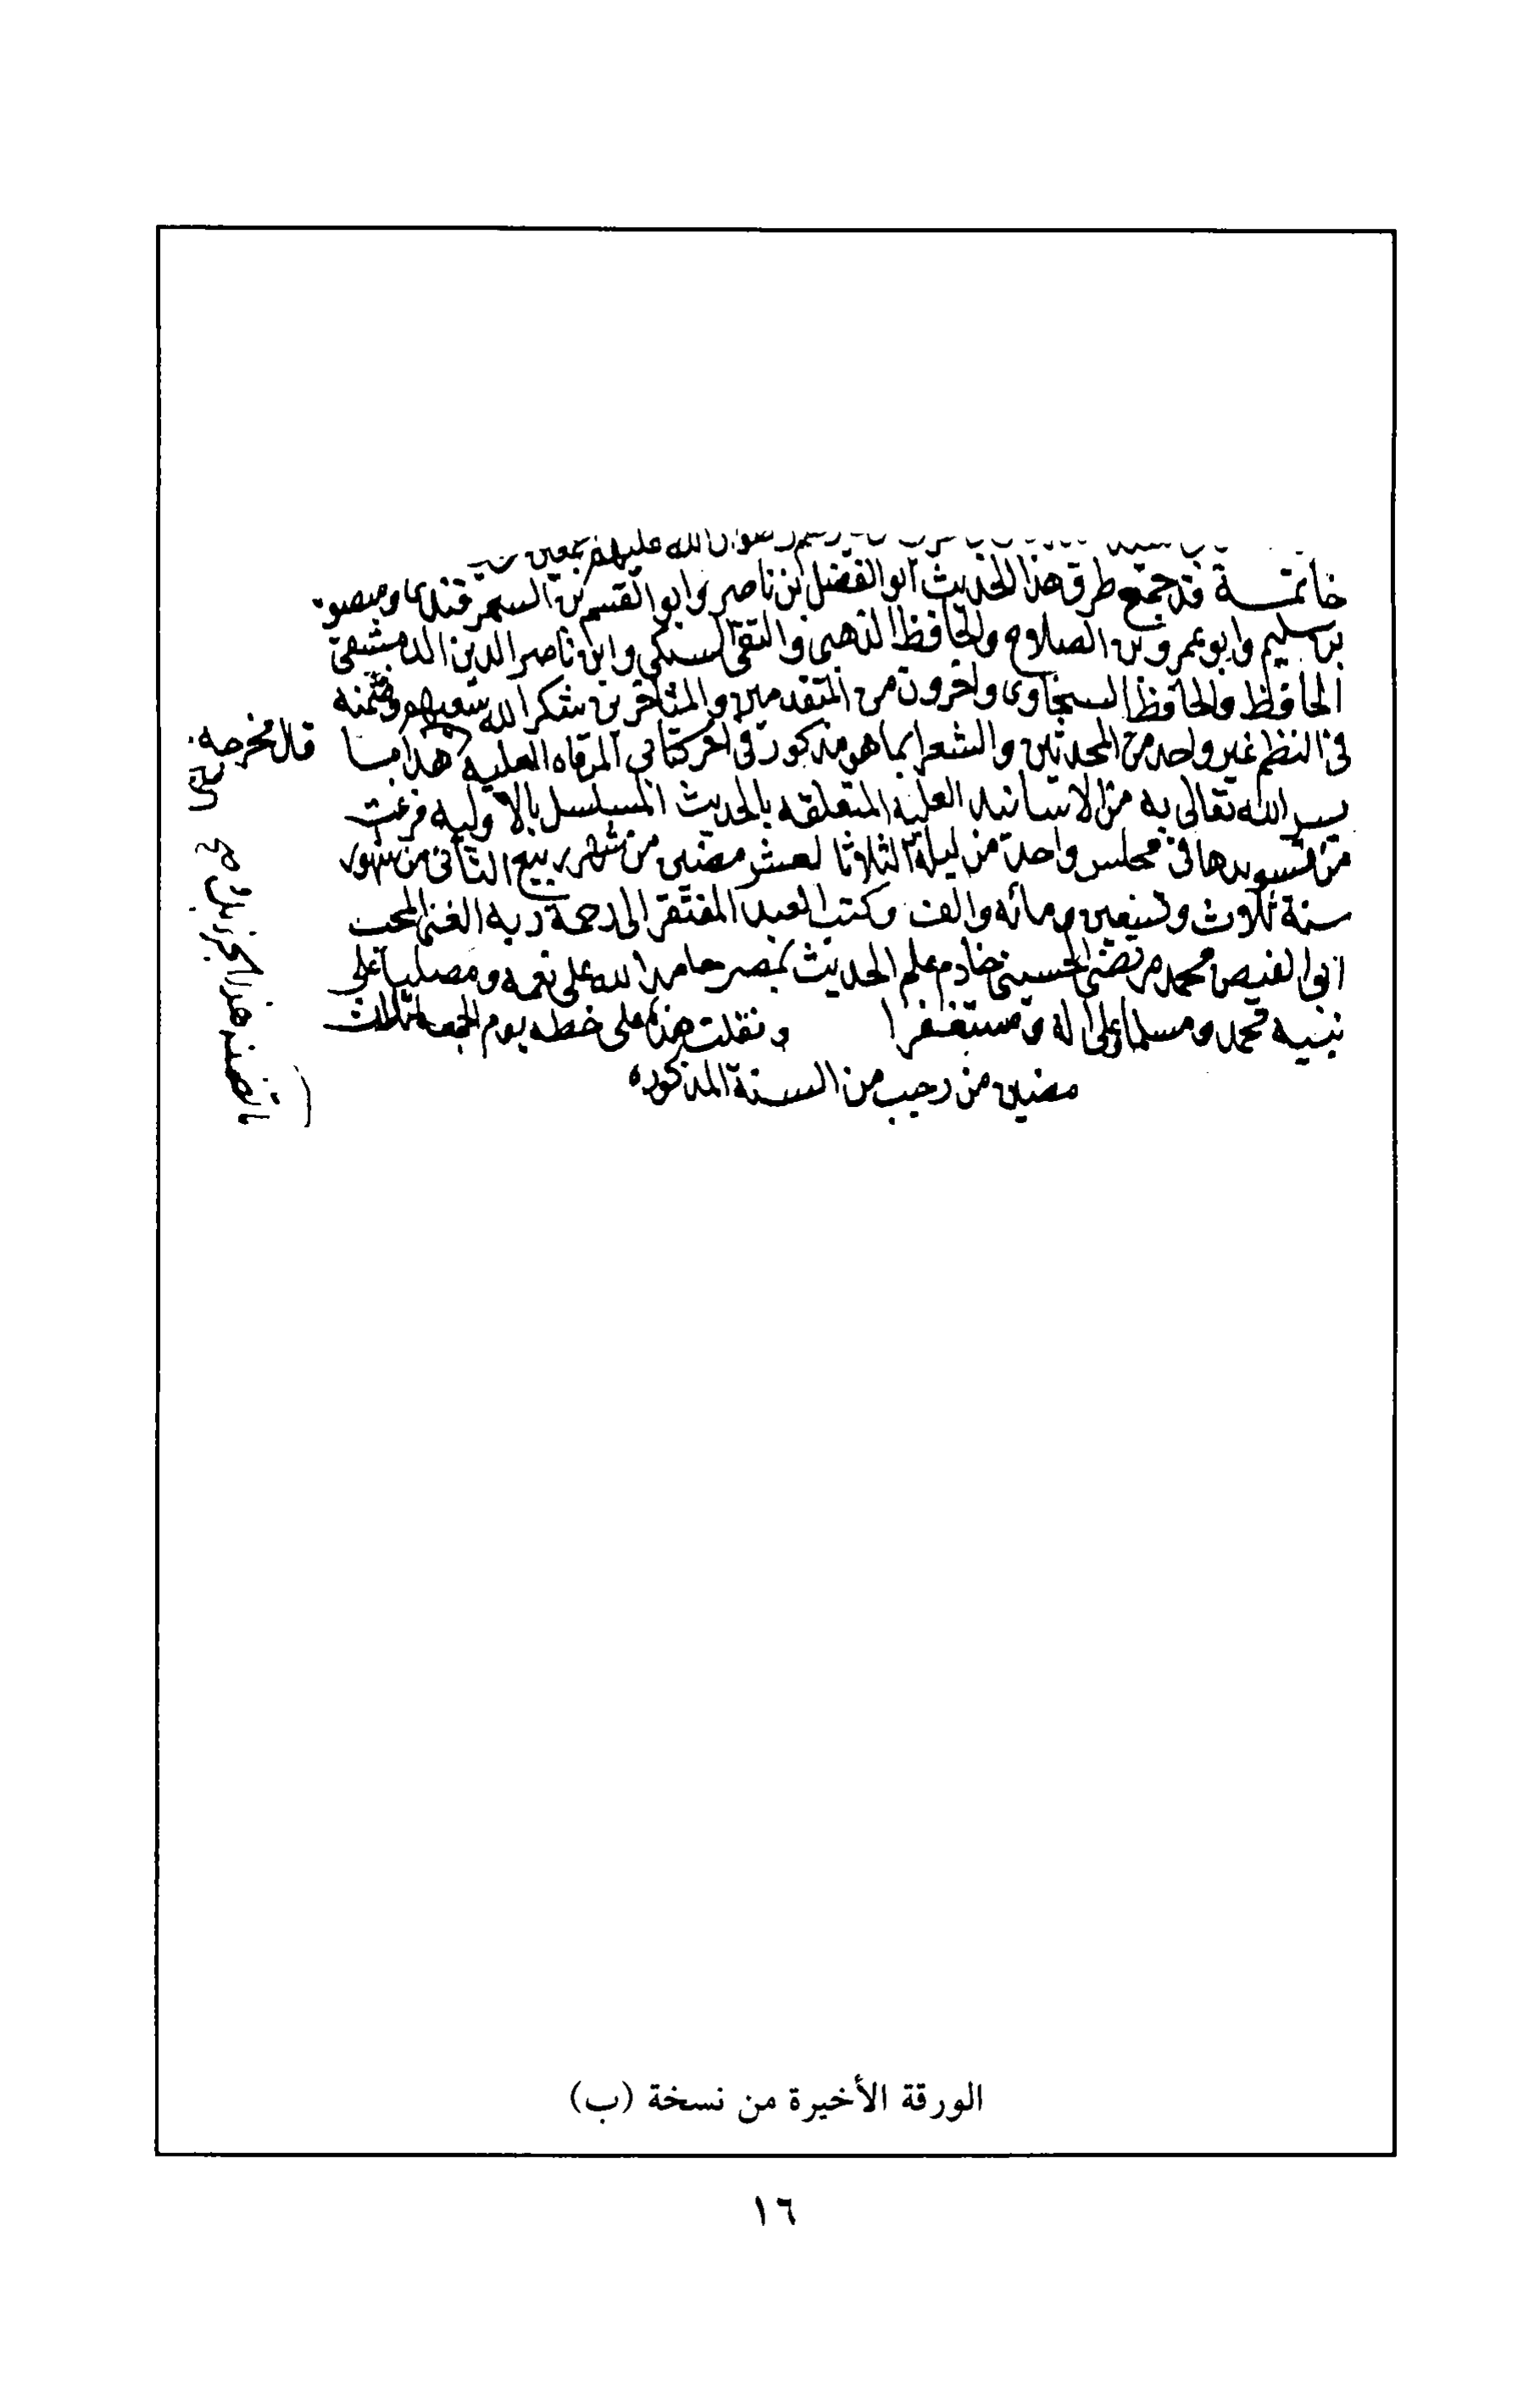 رضوان الله عليهم اجمعين
خاتمـــة قد جمع طرق هذا الحديث ابو الفضل بن ناصر وابو القسم بن السمرقندى ومنصور
بن سليم وابو عمرو بن الصلاح والحافظ الذهبى والتقى السبكى وابن ناصر الدين الدمشقى
الحافظ والحافظ السخاوى واخرون من المتقدمين والمتاخرين شكر الله سعيهم وضمنه
فى النظم غير واحد من المحدثين والشعرا بما هو مذكور فى اخر كتابى المرقاه العليه هذا ما
يسر الله تعالى به من الاسانيد العليه المتعلقه بالحديث المسلسل بالاوليه فرغت
من تسويدها فى مجلس واحد من ليلة الثلاثا لعشر مضين من شهر ربيع الثانى من شهور
سنة ثلاث وتسعين ومائه والف وكتب العبد المفتقر الى رحمة ربه الغنى المحب
ابو الفيض محمد مرتضى الحسينى خادم علم الحديث بمصر حامدا لله على نعمه ومصليا على
نبيه محمد ومسلما وعلى اله ومستغفرا ونقلت هذا على خطه يوم الجمعه لثلاث
مضين من رجب من السنة المذكوره
قال مخرجه
هذا الجزء
الورقة الأخيرة من نسخة (ب)
١٦